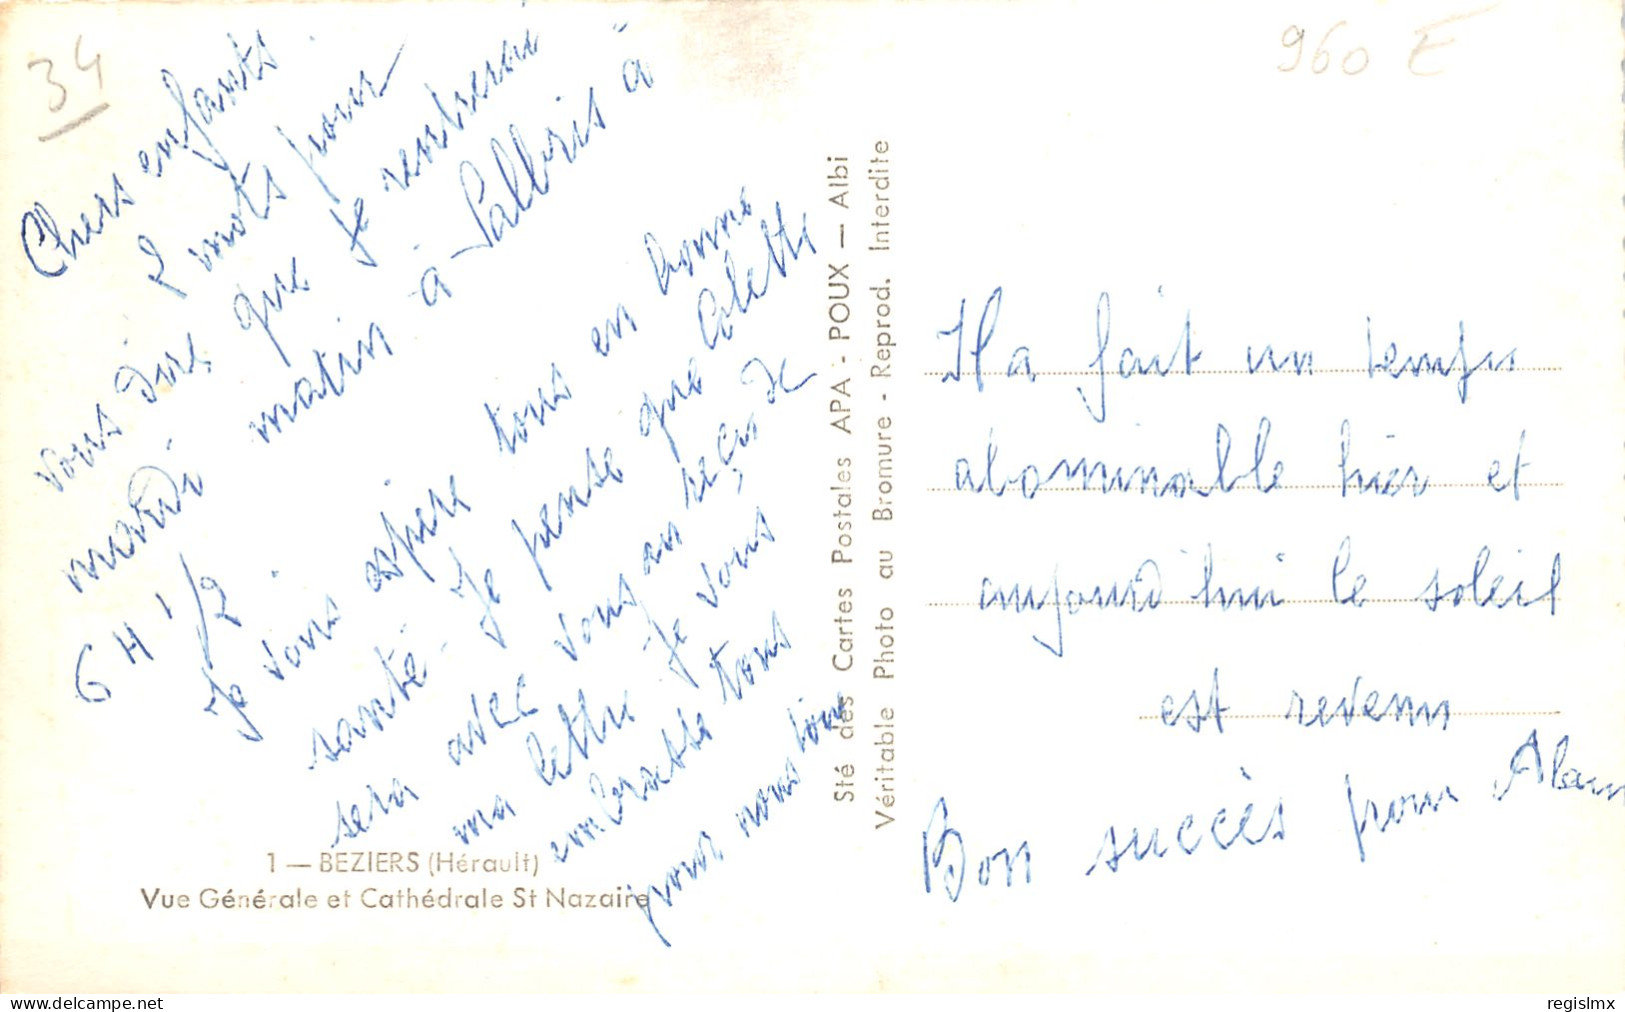 34
960 E
Chers enfants
2 mots pour
vous dire que je rentrerai
mardi matin à Salbris à
6 H 1/2.
Je vous espère tous en bonne
santé. Je pense que Colette
sera avec vous au reçu de
ma lettre Je vous
embrasse tous
pour nous tous
1 — BEZIERS (Hérault)
Vue Générale et Cathédrale St Nazaire
Sté des Cartes Postales APA - POUX — Albi
Véritable Photo au Bromure - Reprod. Interdite
Il a fait un temps
abominable hier et
aujourd'hui le soleil
est revenu
Bon succès pour Alain
delcampe.net
regislmx